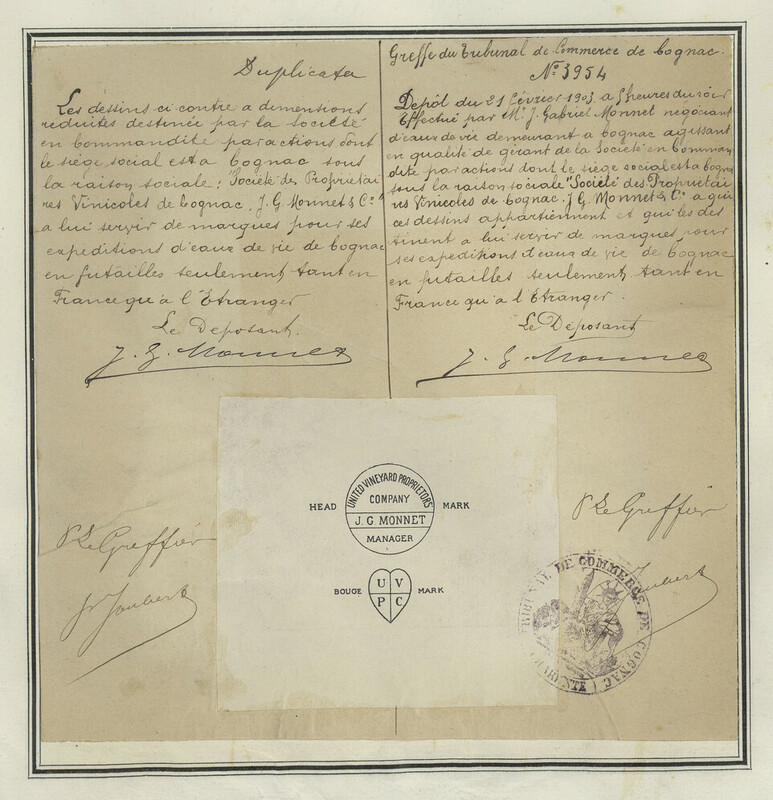 Duplicata
Les dessins ci contre a dimensions
reduites destinée par la Société
en Commandite par actions dont
le siège social est a Cognac sous
la raison sociale: "Société des Proprietai
res Vinicoles de Cognac. J. G Monnet & Cº"
a lui servir de marques pour ses
expeditions d'eaux de vie de Cognac
en futailles seulement tant en
France qu'a l'Etranger
Le Deposant.
J. G. Monnet
Greffe du Tribunal de Commerce de Cognac.
Nº 3954
Depôt du 21 Février 1903 a 5 heures du soir
Effectué par Mr. J. Gabriel Monnet négociant
d'eaux de vie demeurant a Cognac agissant
en qualité de gérant de la Société en Comman
dite par actions dont le siège social est a Cognac
sous la raison sociale "Société des Proprietai
res Vinicoles de Cognac. J. G Monnet & Cº a qui
ces dessins appartiennent et qui les des
tinent a lui servir de marques pour
ses expeditions d'eaux de vie de Cognac
en futailles seulement tant en
France qu'a l'Etranger.
Le Deposant
J. G. Monnet
HEAD MARK
UNITED VINEYARD PROPRIETORS'
COMPANY
J. G. MONNET
MANAGER
BOUGE MARK
U V
P C
P Le Greffier
Jr Joubert
P Le Greffier
Joubert
TRIBUNAL DE COMMERCE DE COGNAC
(CHARENTE)